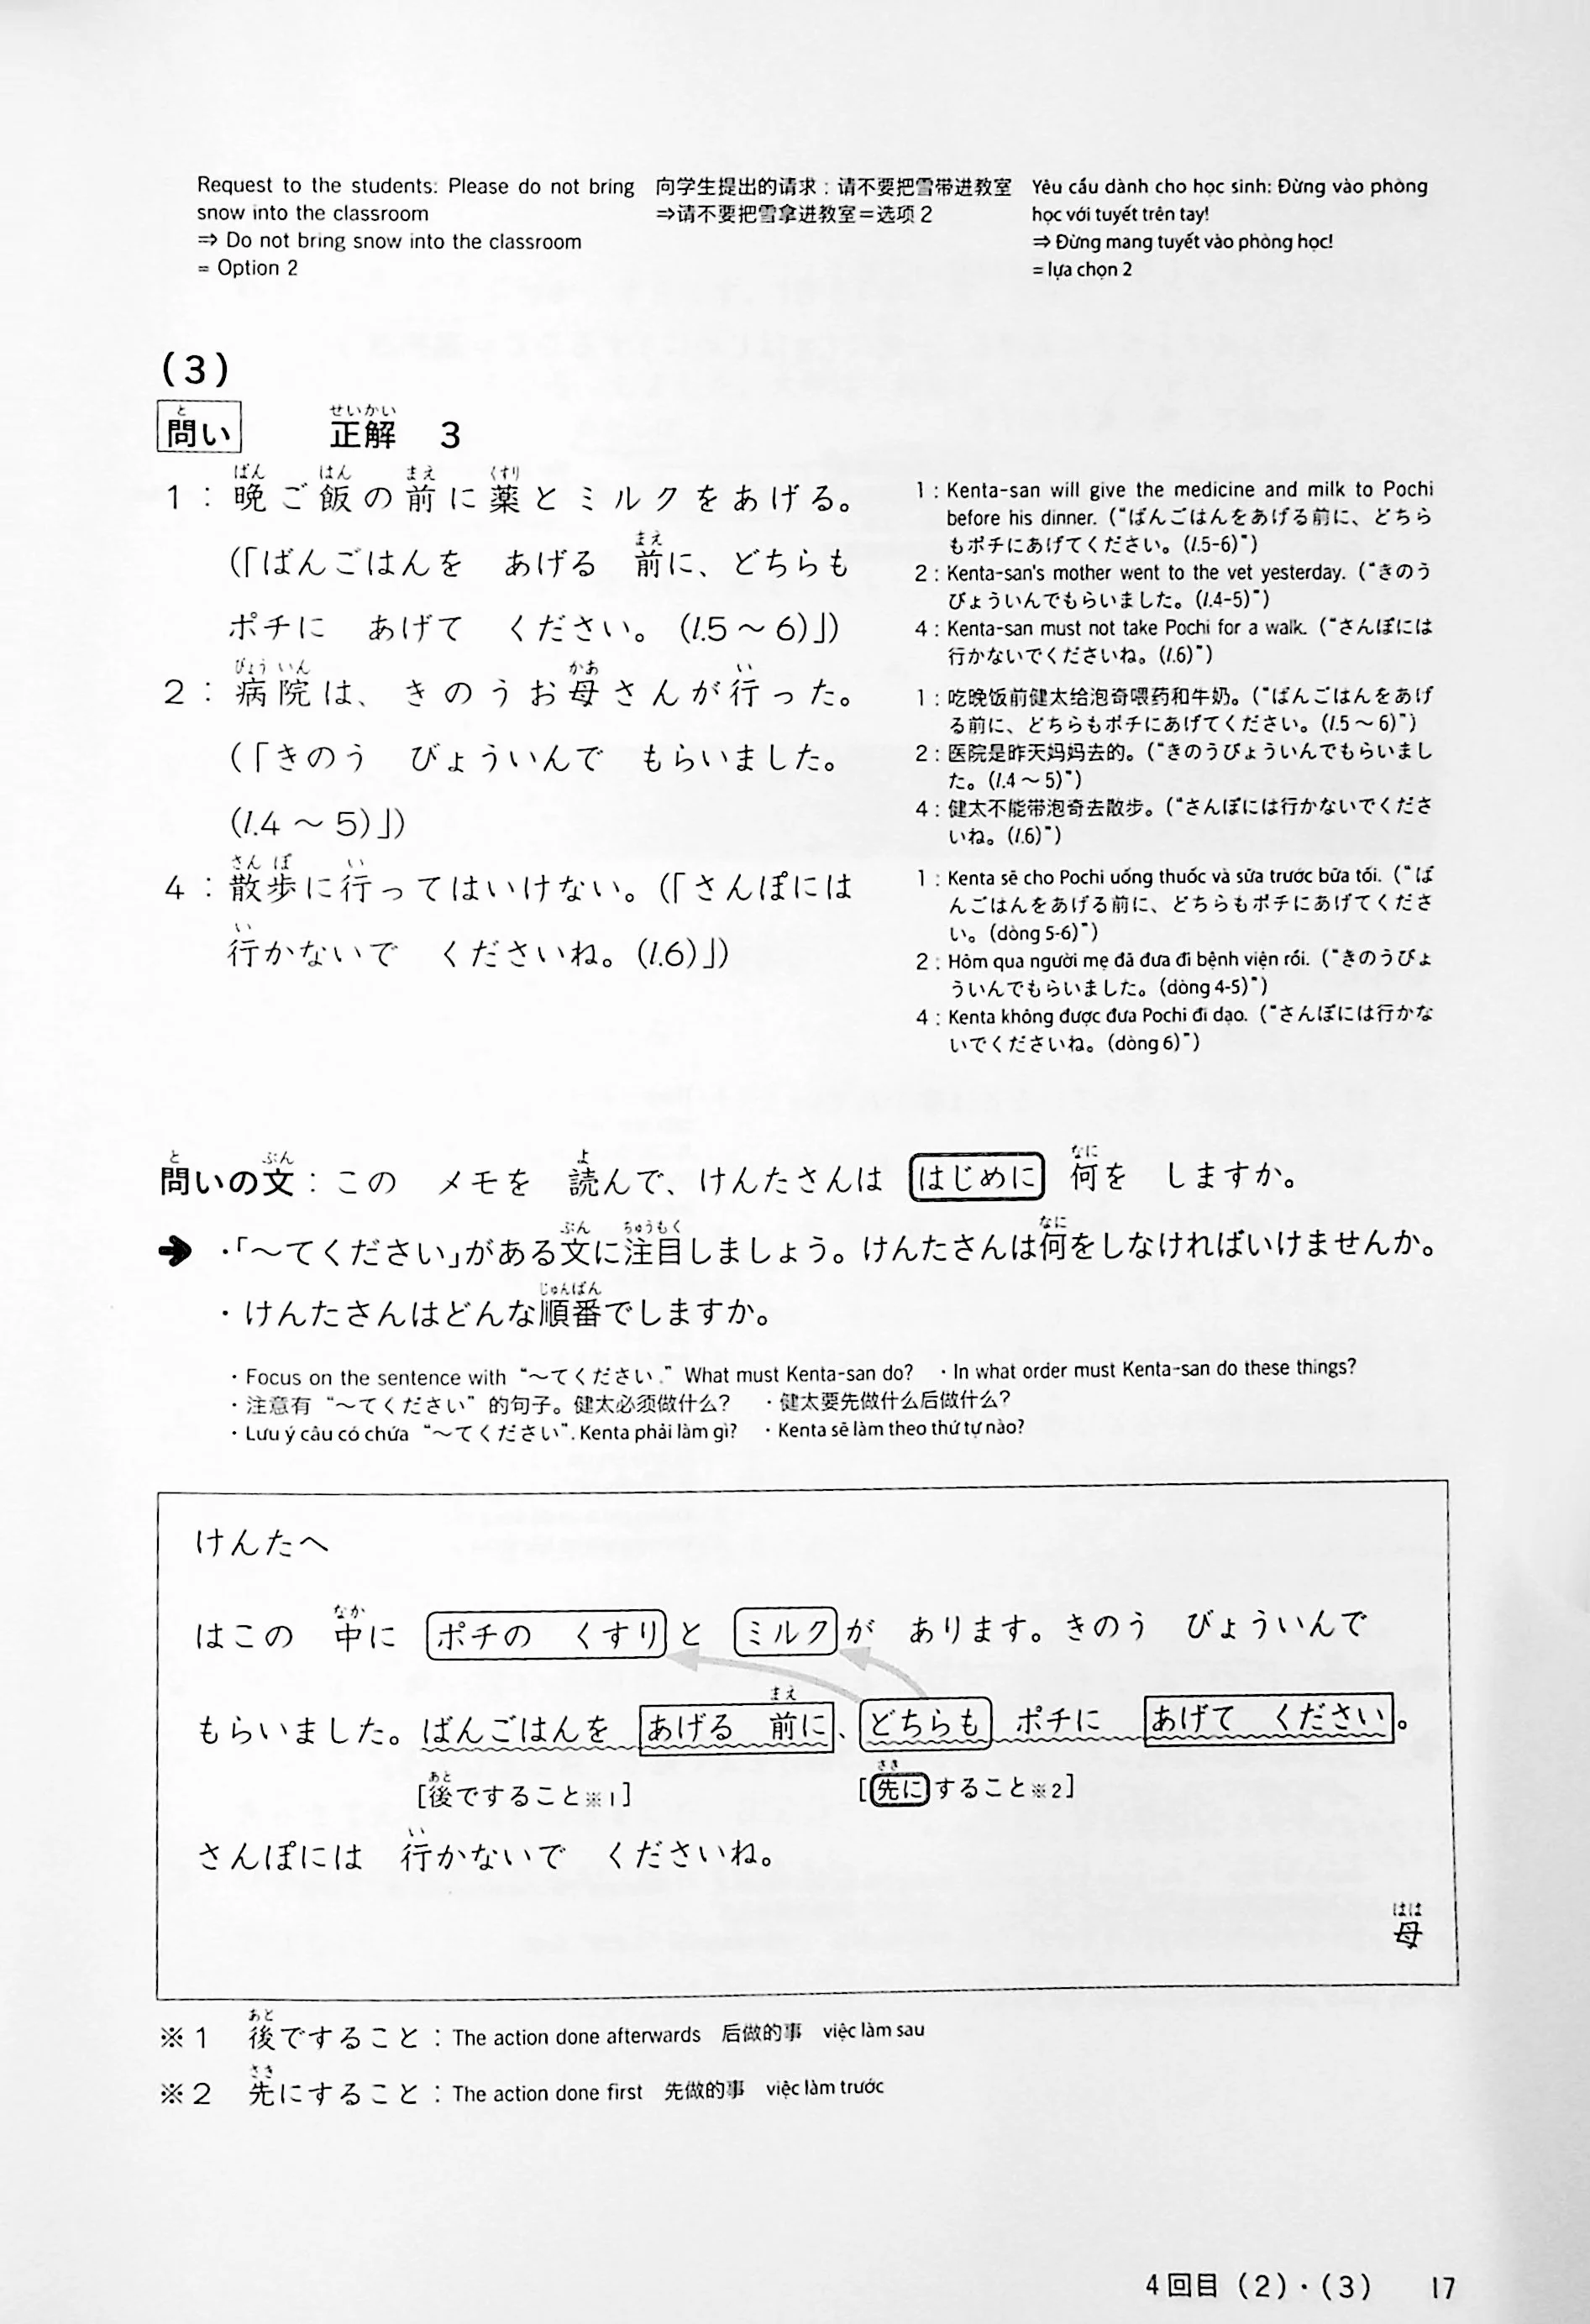 Request to the students: Please do not bring
snow into the classroom
⇒ Do not bring snow into the classroom
= Option 2
向学生提出的请求：请不要把雪带进教室
⇒请不要把雪拿进教室＝选项 2
Yêu cầu dành cho học sinh: Đừng vào phòng
học với tuyết trên tay!
⇒ Đừng mang tuyết vào phòng học!
= lựa chọn 2
(3)
と
問い
せいかい
正解 3
ばん はん まえ くすり
1：晩ご飯の前に薬とミルクをあげる。
まえ
(「ばんごはんを あげる 前に、どちらも
ポチに あげて ください。(l.5～6)」)
びょういん かあ い
2：病院は、きのうお母さんが行った。
(「きのう びょういんで もらいました。
(l.4～5)」)
さんぽ い
4：散歩に行ってはいけない。(「さんぽには
い
行かないで くださいね。(l.6)」)
1：Kenta-san will give the medicine and milk to Pochi
before his dinner. (“ばんごはんをあげる前に、どちら
もポチにあげてください。(l.5-6)”)
2：Kenta-san's mother went to the vet yesterday. (“きのう
びょういんでもらいました。(l.4-5)”)
4：Kenta-san must not take Pochi for a walk. (“さんぽには
行かないでくださいね。(l.6)”)
1：吃晚饭前健太给泡奇喂药和牛奶。(“ばんごはんをあげ
る前に、どちらもポチにあげてください。(l.5～6)”)
2：医院是昨天妈妈去的。(“きのうびょういんでもらいまし
た。(l.4～5)”)
4：健太不能带泡奇去散步。(“さんぽには行かないでくださ
いね。(l.6)”)
1：Kenta sẽ cho Pochi uống thuốc và sữa trước bữa tối. (“ば
んごはんをあげる前に、どちらもポチにあげてくださ
い。(dòng 5-6)”)
2：Hôm qua người mẹ đã đưa đi bệnh viện rồi. (“きのうびょ
ういんでもらいました。(dòng 4-5)”)
4：Kenta không được đưa Pochi đi dạo. (“さんぽには行かな
いでくださいね。(dòng 6)”)
と ぶん よ なに
問いの文：この メモを 読んで、けんたさんは はじめに 何を しますか。
ぶん ちゅうもく なに
➔ ・「～てください」がある文に注目しましょう。けんたさんは何をしなければいけませんか。
じゅんばん
・けんたさんはどんな順番でしますか。
・Focus on the sentence with “～てください.” What must Kenta-san do? ・In what order must Kenta-san do these things?
・注意有“～てください”的句子。健太必须做什么？ ・健太要先做什么后做什么？
・Lưu ý câu có chứa “～てください”. Kenta phải làm gì? ・Kenta sẽ làm theo thứ tự nào?
けんたへ
なか
はこの 中に ポチの くすりと ミルクが あります。きのう びょういんで
まえ
もらいました。ばんごはんを あげる 前に、どちらも ポチに あげて ください。
あと さき
[後ですること※1] [先にすること※2]
い
さんぽには 行かないで くださいね。
はは
母
あと
※1 後ですること：The action done afterwards 后做的事 việc làm sau
さき
※2 先にすること：The action done first 先做的事 việc làm trước
4回目（2）・（3） 17